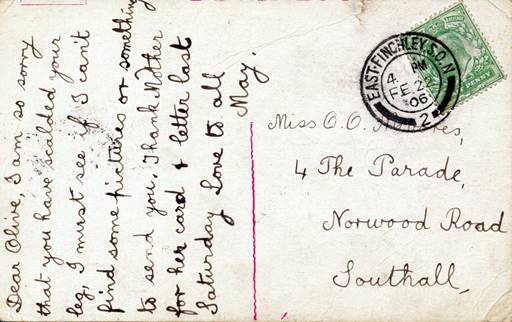 Dear Olive, I am so sorry
that you have scalded your
leg, I must see if I can't
find some pictures or something
to send you. Thank Mother
for her card & letter last
Saturday Love to all
May.
EAST-FINCHLEY.S.O.N
4 PM
FE 2
06
2
PENNY
Miss O. O.
4 The Parade,
Norwood Road
Southall,